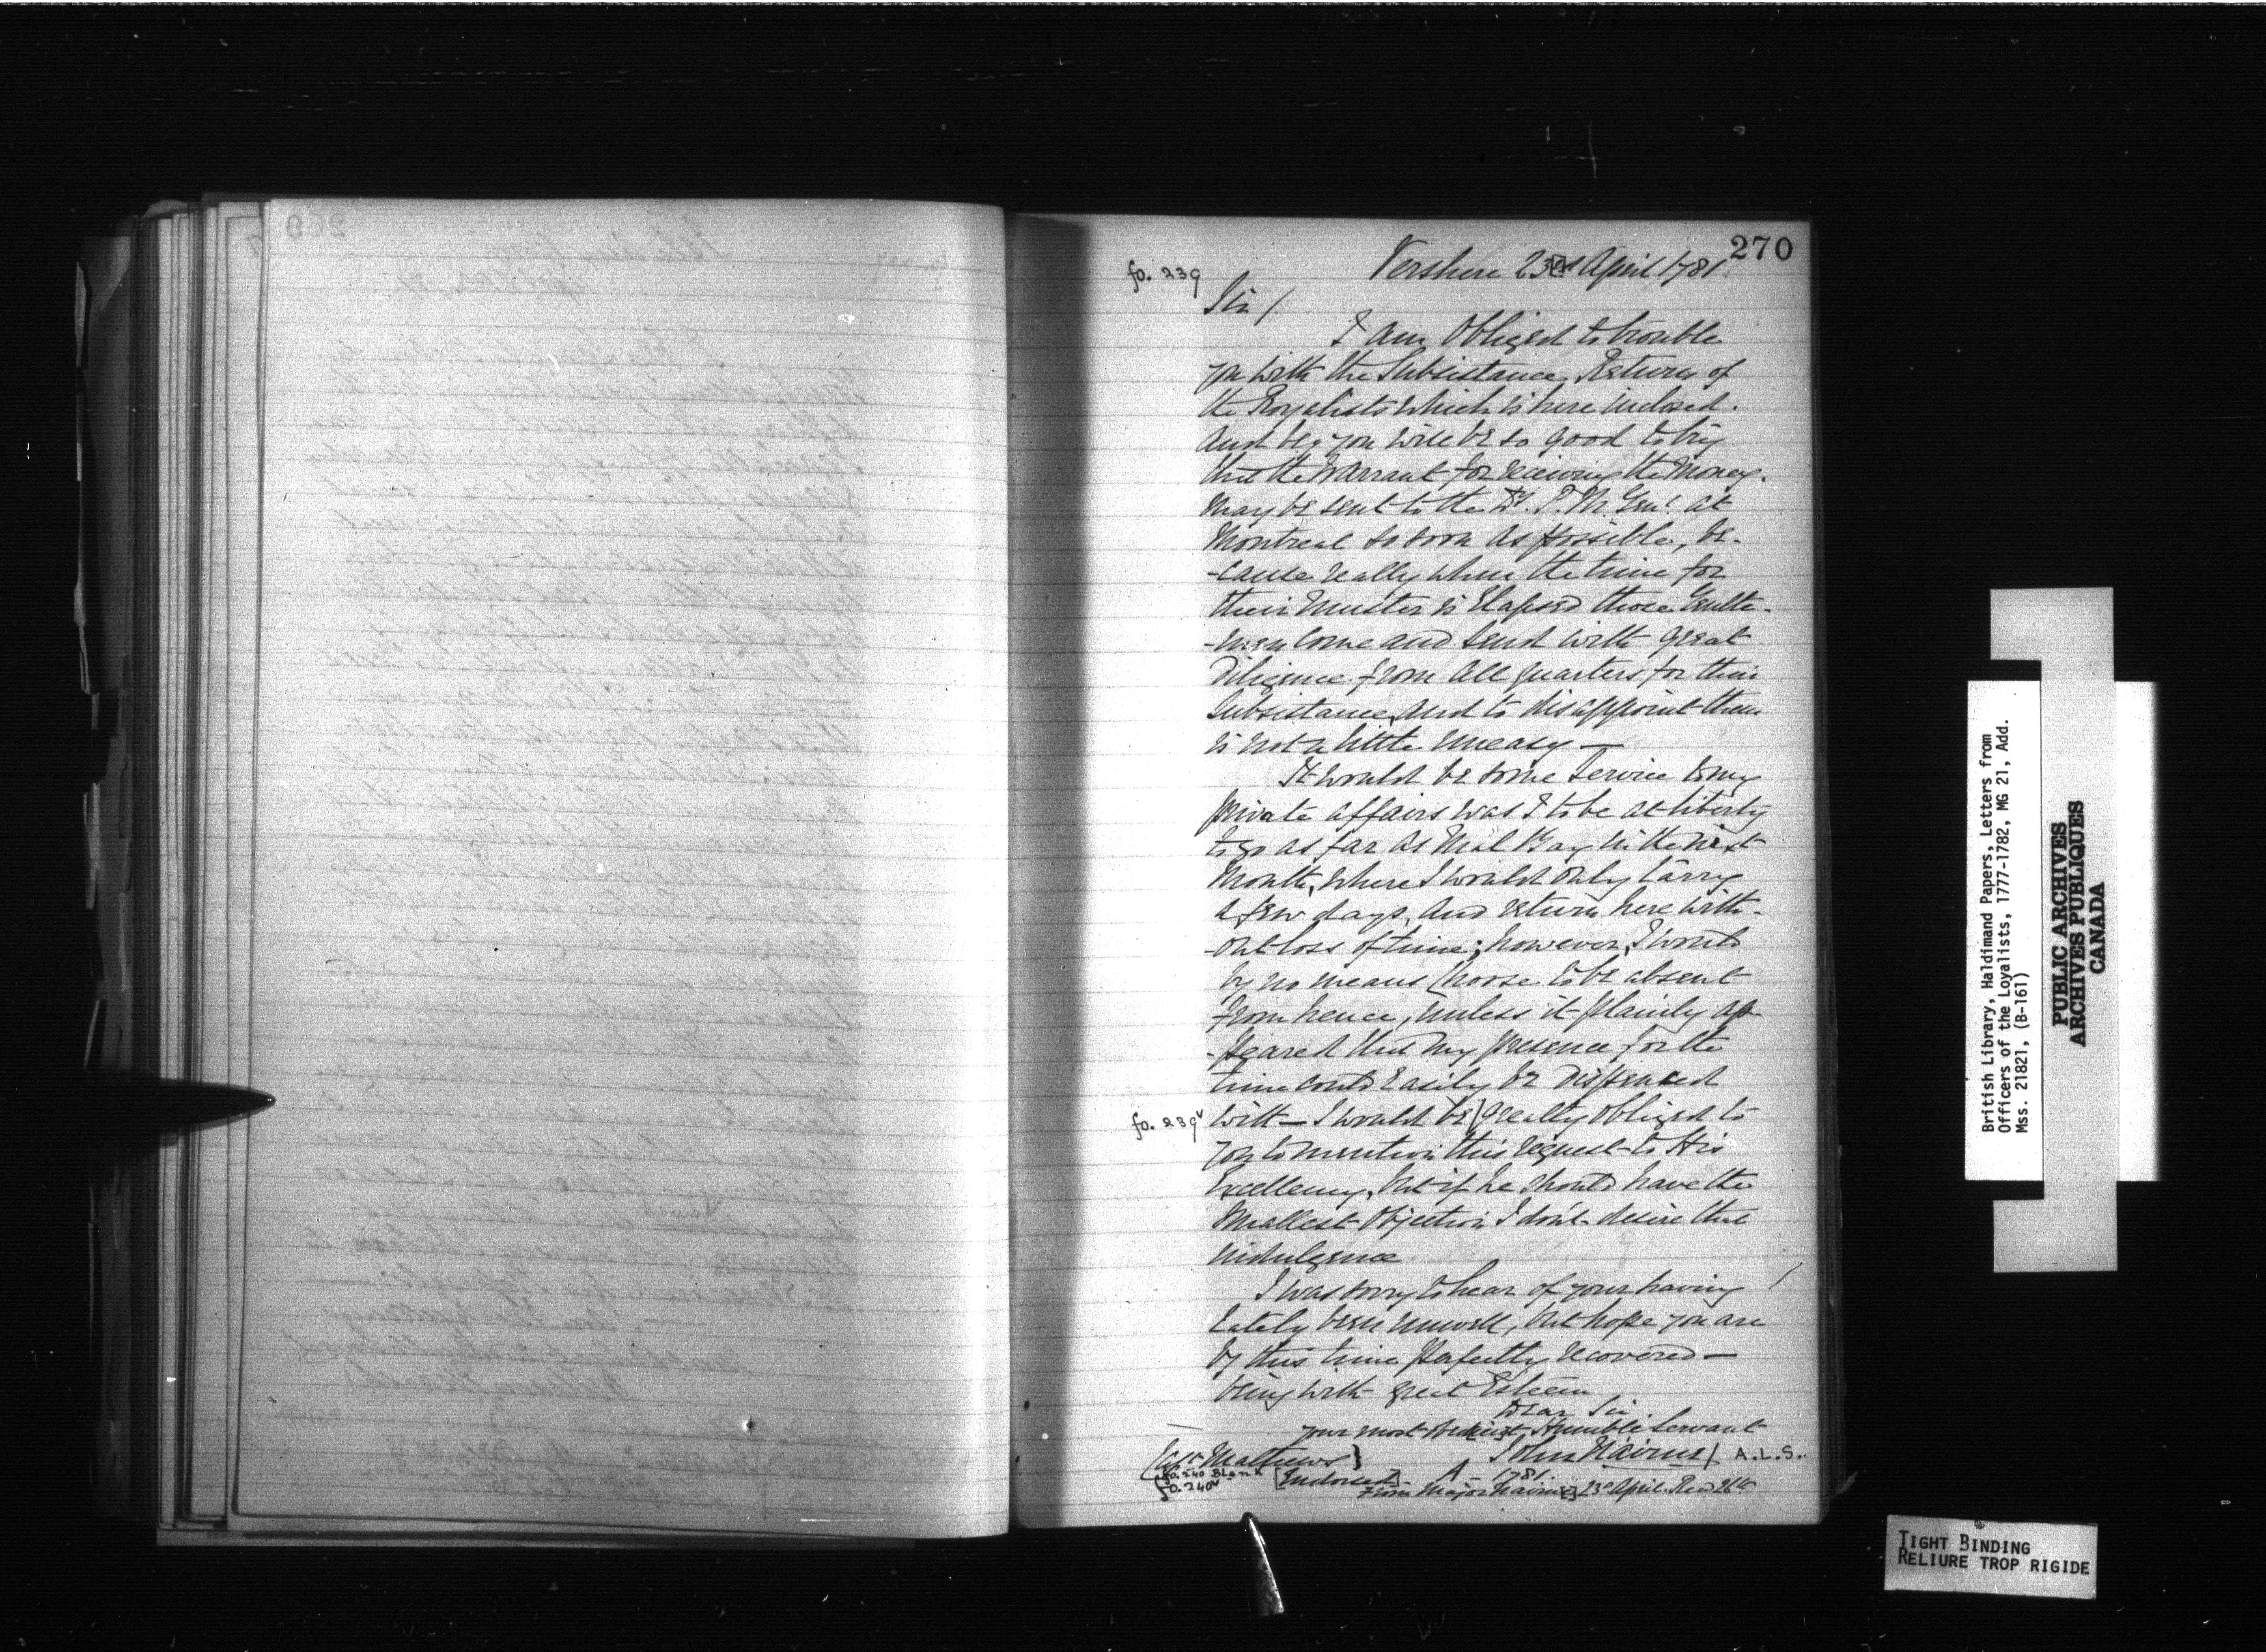 270
fo. 239
Vershere 23d April 1781
Sir /
I am Obliged to trouble
you with the Subsistance Return of
the Royalists which is here inclosed.
and beg you will be so good to try
that the Warrant for receiving the Money.
may be sent to the Dy. P. M. Genl. at
Montreal so soon as possible, be-
-cause really when the time for
their Muster is Elapsed those Gentle-
-men come and send with great
Diligence from all quarters for their
Subsistance, and to disappoint them
is not a little uneasy —
It would be some service to my
private affairs was I to be at liberty
to go as far as Mal Bay in the next
Month, where I would only tarry
a few days, and return here with-
-out loss of time; however, I would
by no means choose to be absent
from hence, unless it plainly ap-
-peared that my presence for the
time could Easily be dispensed
fo. 239v
with — I would be] greatly obliged to
you to mention this request to His
Excellency, but if he should have the
smallest Objection I don't desire that
indulgence
I was sorry to hear of your having
lately been unwell, but hope you are
by this time perfectly recovered —
being with great Esteem
Dear Sir
your most Humble Servant
John Nairne/ A.L.S.
Capt. Mathews }
fo. 240 Blank
fo. 240v
[Endorsed] A 1781.
From Major Nairne 23d April. Recd 26th
British Library, Haldimand Papers, Letters from
Officers of the Loyalists, 1777-1782, MG 21, Add.
Mss. 21821, (B-161)
PUBLIC ARCHIVES
ARCHIVES PUBLIQUES
CANADA
TIGHT BINDING
RELIURE TROP RIGIDE